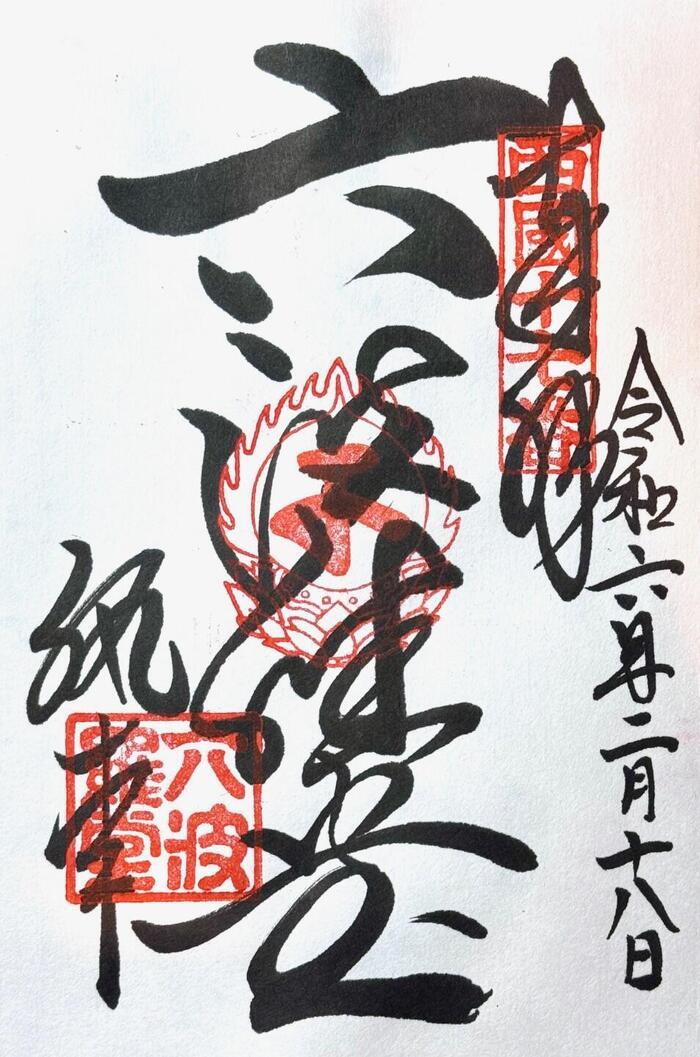 奉拝
西國十七番
令和六年二月十八日
六波羅堂
六波羅堂